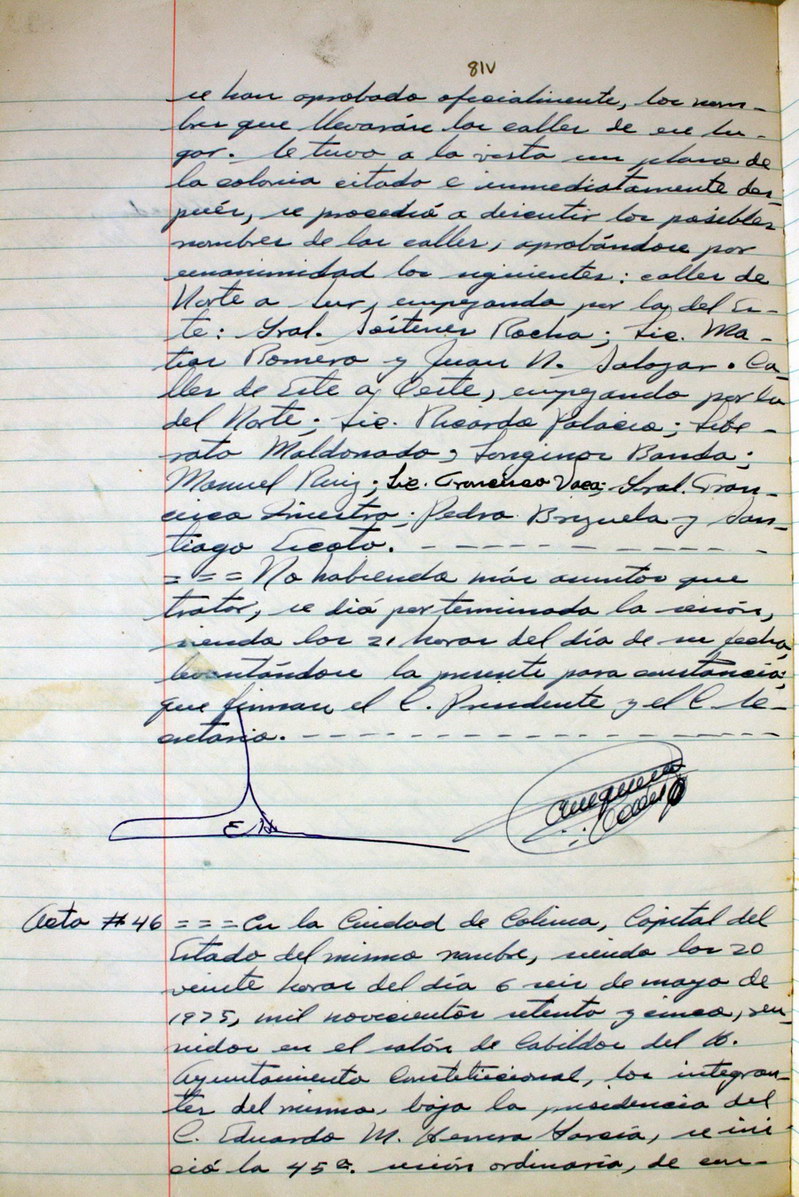 81V
se han aprobado oficialmente, los nom-
bres que llevarán las calles de ese lu-
gar. Se tuvo a la vista un plano de
la colonia citada e inmediatamente des-
pués, se procedió a discutir los posibles
nombres de las calles, aprobándose por
unanimidad los siguientes: calles de
Norte a Sur, empezando por la del Es-
te: Gral. Sóstenes Rocha; Lic. Ma-
tías Romero y Juan N. Salazar. Ca-
lles de Este a Oeste, empezando por la
del Norte: Lic. Ricardo Palacio; Libe-
rato Maldonado, Longinos Banda;
Manuel Ruiz; Lic. Francisco Vaca; Gral. Fran-
cisco Iniestra; Pedro Brizuela y San-
tiago Escoto. - - - - - - - - - -
= = = No habiendo más asuntos que
tratar, se dió por terminada la sesión,
siendo las 21 horas del día de su fecha,
levantándose la presente para constancia;
que firman el C. Presidente y el C. Se-
cretario. - - - - - - - - - - - - - -
Acta # 46 = = = En la Ciudad de Colima, Capital del
Estado del mismo nombre, siendo las 20
veinte horas del día 6 seis de mayo de
1975, mil novecientos setenta y cinco, reu-
nidos en el salón de Cabildos del H.
Ayuntamiento Constitucional, los integran-
tes del mismo, bajo la presidencia del
C. Eduardo M. Herrera García, se ini-
ció la 45a. sesión ordinaria, de con-